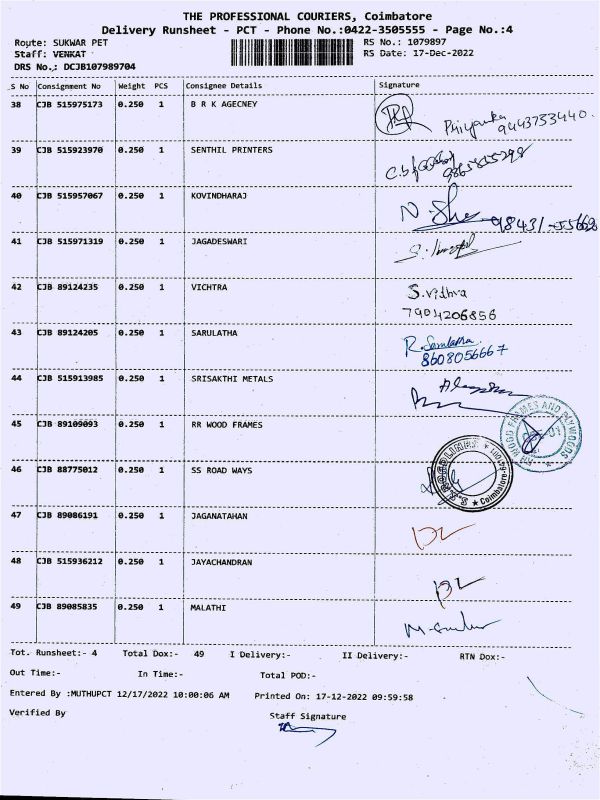 THE PROFESSIONAL COURIERS, Coimbatore
Delivery Runsheet - PCT - Phone No.:0422-3505555 - Page No.:4
Route: SUKWAR PET RS No.: 1079897
Staff: VENKAT RS Date: 17-Dec-2022
DRS No.: DCJB107989704
S No Consignment No Weight PCS Consignee Details Signature
38 CJB 515975173 0.250 1 B R K AGECNEY
Priyanka 9443733440.
39 CJB 515923970 0.250 1 SENTHIL PRINTERS
40 CJB 515957067 0.250 1 KOVINDHARAJ
98431-55662
41 CJB 515971319 0.250 1 JAGADESWARI
42 CJB 89124235 0.250 1 VICHTRA S.vidhva
7904206856
43 CJB 89124205 0.250 1 SARULATHA
8608056667
44 CJB 515913985 0.250 1 SRISAKTHI METALS
45 CJB 89109093 0.250 1 RR WOOD FRAMES
RR WOOD FRAMES AND PLYWOODS
46 CJB 88775012 0.250 1 SS ROAD WAYS
Coimbatore
47 CJB 89086191 0.250 1 JAGANATAHAN
48 CJB 515936212 0.250 1 JAYACHANDRAN
49 CJB 89085835 0.250 1 MALATHI
Tot. Runsheet:- 4 Total Dox:- 49 I Delivery:- II Delivery:- RTN Dox:-
Out Time:- In Time:- Total POD:-
Entered By :MUTHUPCT 12/17/2022 10:00:06 AM Printed On: 17-12-2022 09:59:58
Verified By Staff Signature